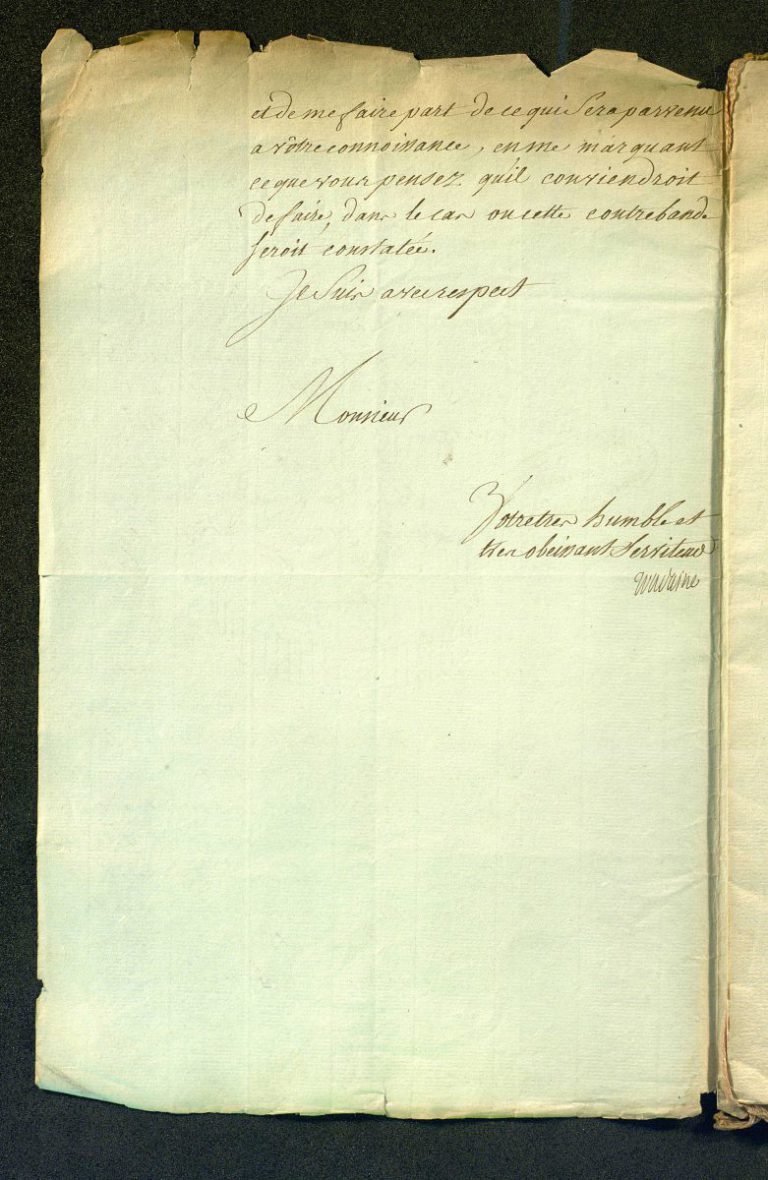 et de me faire part de ce qui sera parvenu
a vôtre connoissance, en me marquant
ce que vous pensez qu'il conviendroit
de faire, dans le cas ou cette contrebande
seroit constatée.
Je suis avec respect
Monsieur
Votre tres humble et
tres obeissant Serviteur